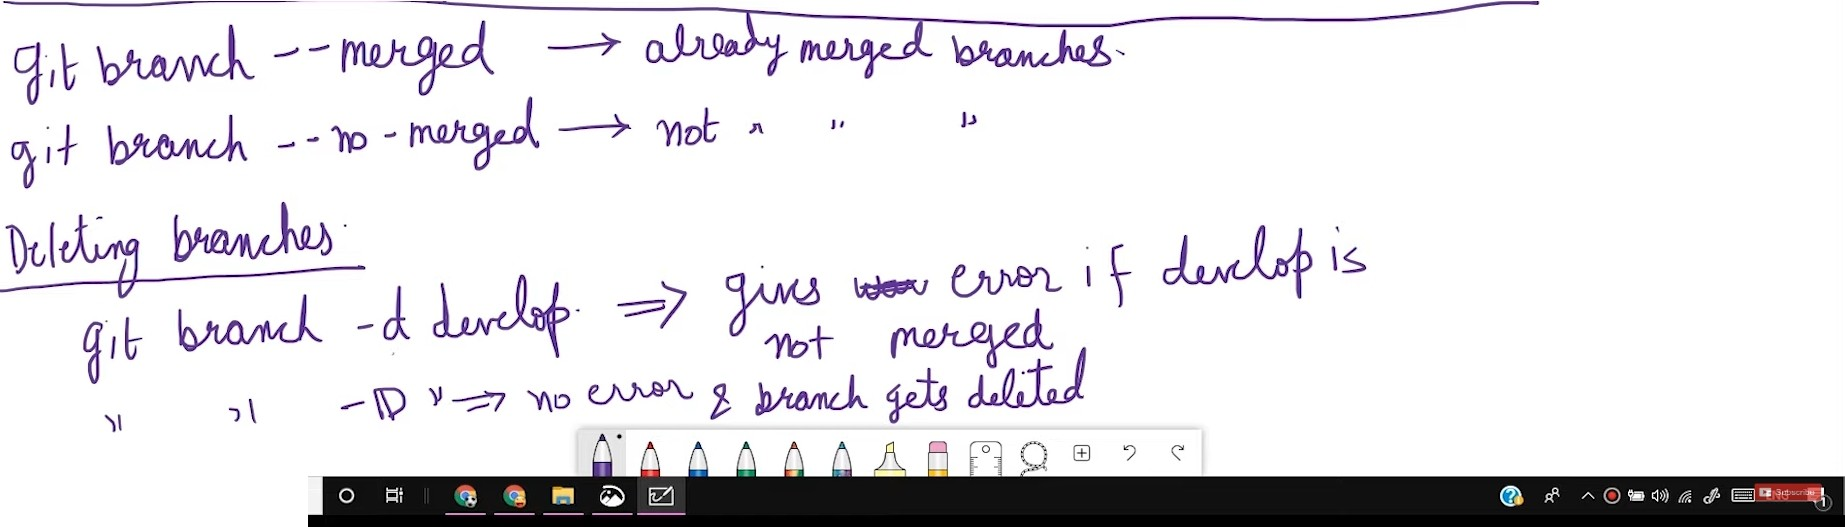 git branch --merged → already merged branches.
git branch --no-merged → not " " "
Deleting branches.
git branch -d develop. ⇒ gives error if develop is
not merged
" " -D " ⇒ no error & branch gets deleted
Subscribe